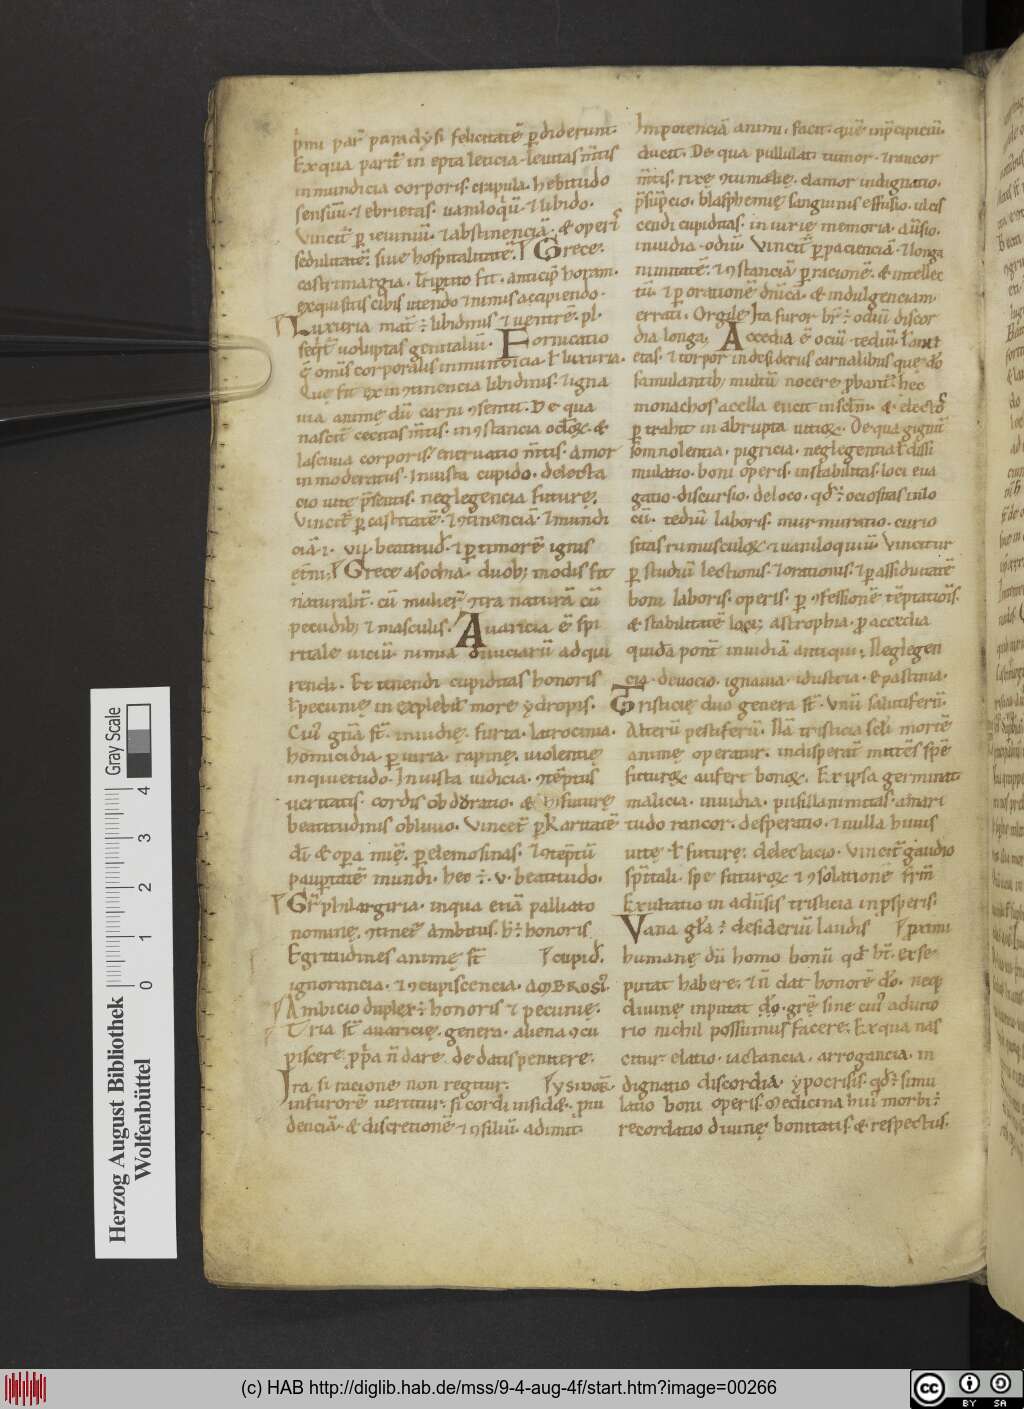 pͥmi par̄ paradysi felicitatē ꝑdiderunt.
Ex qua parit̄ in epta leticia. leuitas m̄tis
inmundicia corporis. crapula. hebitudo
sensuū. ⁊ ebrietas. uaniloqͥū. ⁊ libido.
Vincit̄ ꝑ ieiuniū. ⁊ abstinenciā. & operis
sedulitatē. siue hospitalitatē. Grece.
castrimargia. Tripertito fit. anticipās horam.
exquisitis cibis utendo & nimis accipiendo.
Luxuria mat̄ ÷ libidinis & uentrē. pl.
seqͥt̄ uoluptas genitaliū. Fornicatio
ē omis corporalis inmundicia. ł luxuria.
Quę fit ex inꝯtinencia libidinis. ⁊ igna
uia animę dū carni ꝯsentit. De qua
nascit̄ cecitas m̄tis. inꝯstancia ocłoꝝ. &
lasciuia corporis. eneruatio m̄tis. Amor
inmoderatus. Iniusta cupido. delecta
cio uite p̄sentis. neglegencia futurę.
Vincit̄ ꝑ castitatē. ⁊ ꝯtinenciā. ⁊ mundi
ciā. i. vij. beatitud̄. ⁊ ꝑ timorē ignis
et̄ni. Grece asodma. duob; modis fit
naturalit̄. cū muliere ꝯtra naturā cū
pecudib; ⁊ masculis. Auaricia ē spi
ritale uiciū. nimia diuiciarū adqui
rendi. Et tenendi cupiditas honoris
ł pecunię inexplebit̄ more ydropis.
Cuiꝰ gn̄a st̄. inuidię. furta. latrocinia.
homicidia. ꝑiuria. rapinę. uiolentię
inquietudo. Iniusta iudicia. ꝯtēptus
ueritatis. cordis obduratio. & futurę
beatitudinis obliuio. Vincet̄ ꝑ karitatē
dī & oꝑa mię. ꝑ elemosinas. ⁊ ꝯtēptū
pauꝑtatē mundi. hec ÷. v. beatitudo.
Gr̄ philargiria. in qua etiā palliato
nomine. ꝯtinet̄ ambitus. b: honoris
Egritudines animę st̄ cupid̄.
ignorancia. ⁊ ꝯcupiscencia. AMBROSI.
Ambicio duplex: honoris ⁊ pecunię.
Tria st̄ auaricię. genera. aliena ꝯcu
piscere. ꝓp̄a n̄ dare. de datis penitere.
Ira. si racione non regitur. YSIDOR̄.
in furorē uertitur. si cordi insid&. pru
denciā. & discretionē ⁊ ꝯsiliū. adimit.
Inpotenciā animi. facit. quē in p̄cipiciū.
ducit. De qua pullulat̄ tumor. ⁊ rancor
m̄tis. rixę ꝯtumelię. clamor indignatio.
blasphemię sanguinis effusio. ulcis
cendi cupiditas. iniurię memoria.
inuidia. odiū. Vincit̄ ꝑ pacienciā. ⁊ longa
nimitatē. ⁊ ꝯstanciā ꝑ racionē. & intellec
tū. ⁊ ꝑ orationē dn̄icā. & indulgenciam
errati. Orgile Ira furor br̄ ÷ odiū discor
dia longa. Accedia ē ociū. tediū.
etas. ⁊ torpor in desideriis carnalibus quę do
famulantib; multū nocere ꝓbant̄. hec
monachos a cella eicit in sclm̄. & electos
ꝑtrahit in abrupta uitioꝝ. De qua gignit̄
somnolentia. pigricia. neglegentia ł dissi
mulatio. boni operis. instabilitas. loci eua
gatio. discursio. de loco. qd̄ ÷ ociositas in lo
cū. tediū laboris. murmuratio. curio
sitas rumusculoꝝ. ⁊ uaniloquiū. Vincitur
ꝑ studiū lectionis. ⁊ orationis. ⁊ ꝑ assiduitatē
boni laboris. operis. ꝑ ꝯfessionē tēptationis.
& stabilitatē loci; astrophia. ꝑ accedia
quidā pon̄t inuidiā antiqui. Neglegen
cia. deuocio. ignauia. idustria. & pastinia.
Tristicię duo genera st̄. Vnū salutiferū.
Alterū pestiferū. Nā tristicia scłi mortē
animę operatur. indisperat̄ mittēs spē
futuroꝝ aufert bonoꝝ. Ex ipsa germinat
malicia. inuidia. pusillanimitas. amari
tudo rancor. desperatio. ⁊ nulla huius
uitę. ł futurę. delectacio. Vincit̄ gaudio
sp̄itali. spe futuroꝝ ⁊ ꝯsolatione fr̄m̄
Exultatio in aduersis tristicia in ꝓsperis.
Vana gła ÷ desideriū laudis proximi
humanę dū homo bonū qd̄ ht̄. ex se
putat habere. ⁊ n̄ dat honorē do. neqꝫ
diuinę inputat do. grę sine cuiꝰ aduto
rio nichil possumus facere. Ex qua nas
citur. elatio. iactancia. arrogancia. in
dignatio discordia. ypocrisis. qd̄ ÷ simu
latio boni operis. Medicina huiꝰ morbi ÷
recordatio diuinę bonitatis & respectus.
Herzog August Bibliothek
Wolfenbüttel
0 1 2 3 4
Gray Scale
(c) HAB http://diglib.hab.de/mss/9-4-aug-4f/start.htm?image=00266
cc BY SA